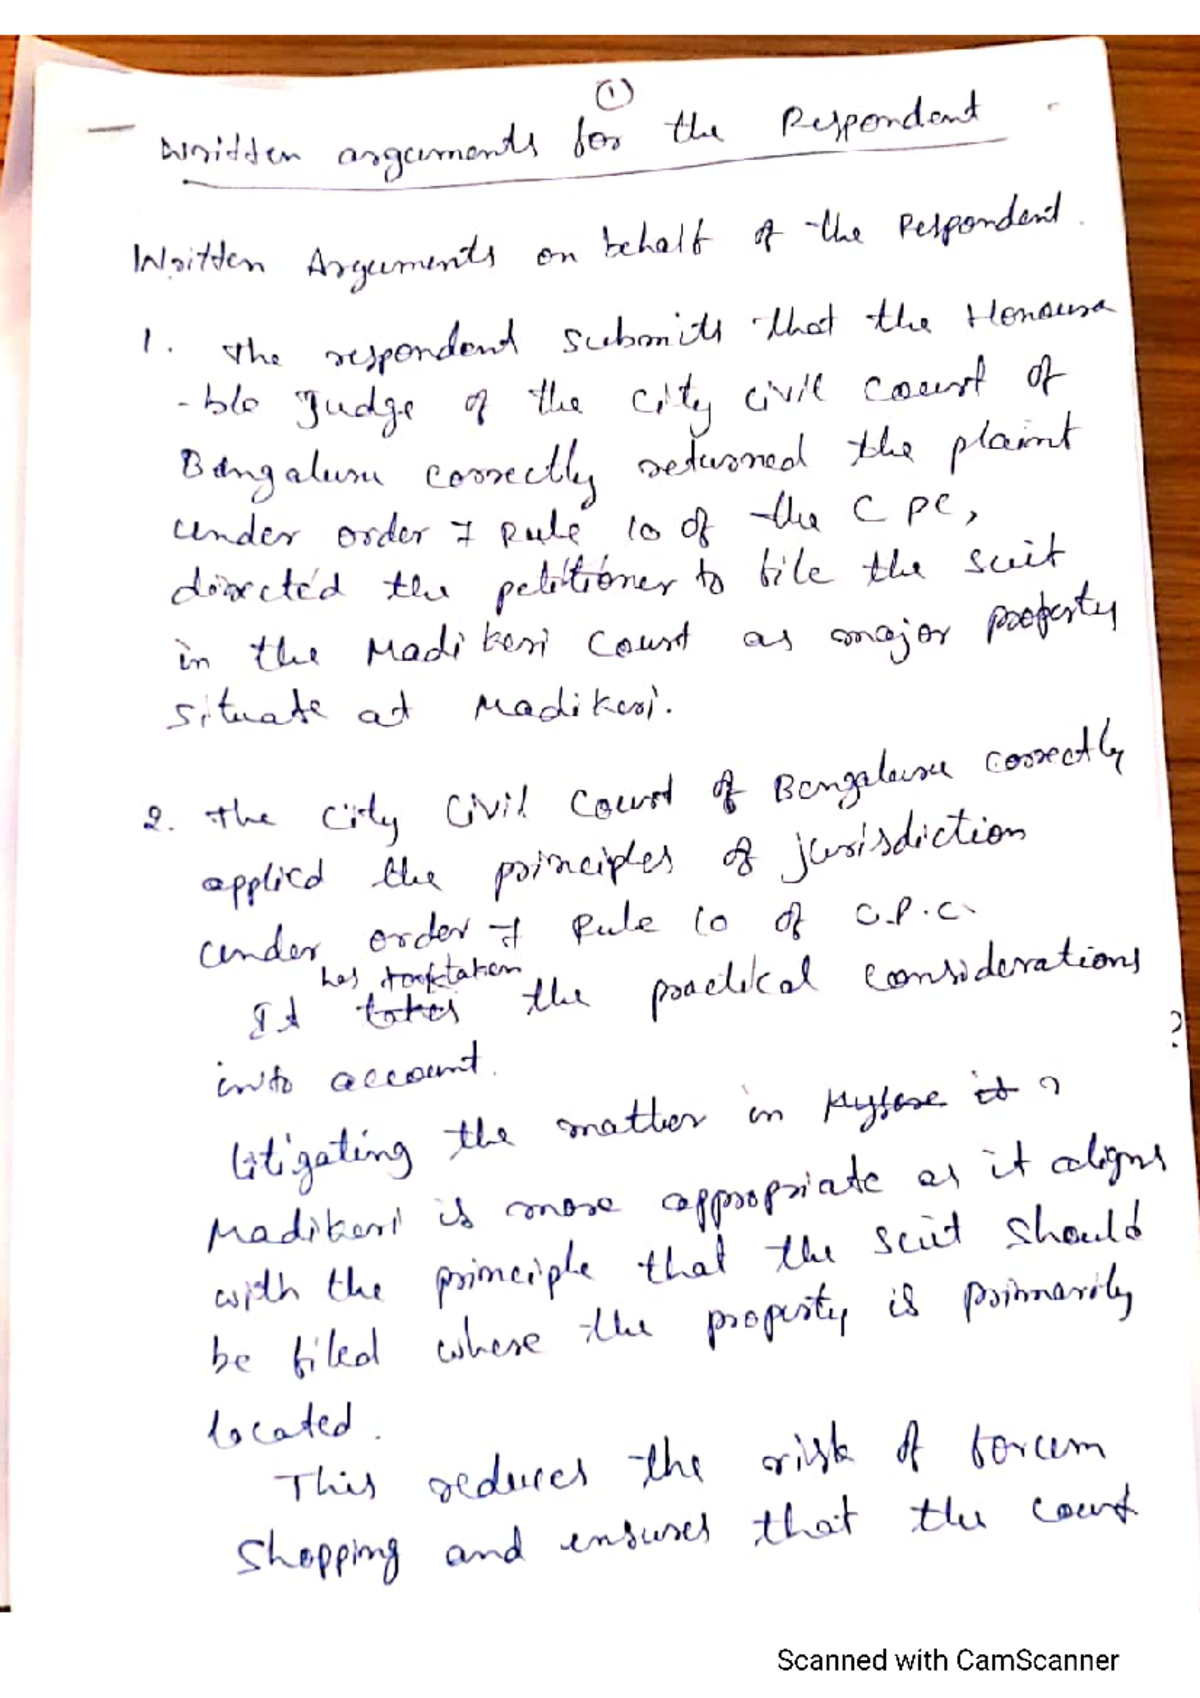 1
Written arguments for the Respondent
Written Arguments on behalf of the Respondent.
1. The respondent submits that the Honoura
-ble Judge of the City Civil Court of
Bengaluru correctly returned the plaint
under order 7 Rule 10 of the CPC,
directed the petitioner to file the suit
in the Madikeri Court as major property
situate at Madikeri.
2. The City Civil Court of Bengaluru correctly
applied the principles of jurisdiction
under order 7 Rule 10 of C.P.C.
has taken
It takes the practical considerations
into account.
?
litigating the matter in Mysore it ?
Madikeri is more appropriate as it aligns
with the principle that the suit should
be filed where the property is primarily
located.
This reduces the risk of forum
shopping and ensures that the court
Scanned with CamScanner